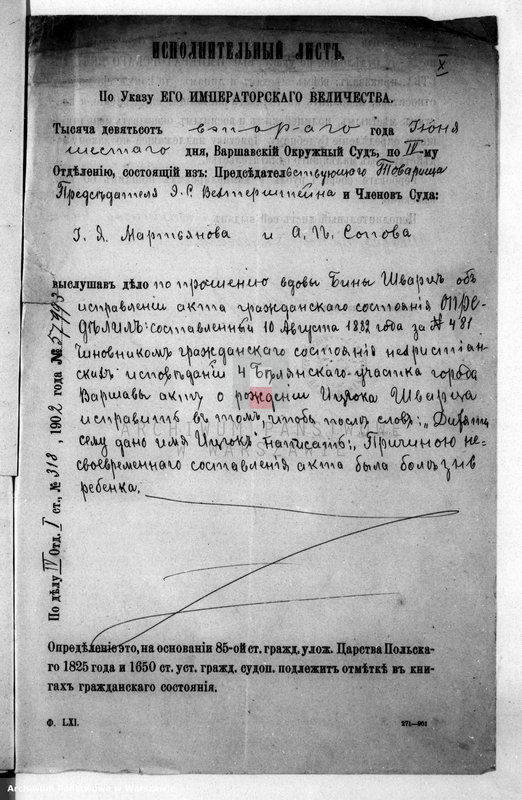 ИСПОЛНИТЕЛЬНЫЙ ЛИСТЪ.
X
По Указу ЕГО ИМПЕРАТОРСКАГО ВЕЛИЧЕСТВА.
Тысяча девятьсот втораго года Іюня
шестаго дня, Варшавскій Окружный Судъ, по IV-му
Отдѣленію, состоящій изъ: Предсѣдательствующаго Товарища
Предсѣдателя Э. С. Веттерштейна и Членовъ Суда:
І. Я. Мартьянова и А. П. Сопова
выслушавъ дѣло по прошенію вдовы Бины Шварцъ объ
исправленіи акта гражданскаго состоянія ОПРЕ-
ДѢЛИЛЪ: составленный 10 Августа 1882 года за № 481
Чиновникомъ гражданскаго состоянія нехристіан-
скихъ исповѣданій 4 Бѣлянскаго участка города
Варшавы актъ о рожденіи Ицкока Шварца
исправить въ томъ, чтобы послѣ словъ: „Дитяти
сему дано имя Ицкокъ" написать: „Причиною не-
своевременнаго составленія акта была болѣзнь
ребенка.
По дѣлу IV Отд. I ст., № 318, 1902 года №
Опредѣленіе это, на основаніи 85-ой ст. гражд. улож. Царства Польска-
го 1825 года и 1650 ст. уст. гражд. судоп. подлежитъ отмѣткѣ въ кни-
гахъ гражданскаго состоянія.
Ф. LXI.
271—901
ARCHIWUM PAŃSTWOWE
W WARSZAWIE
Archiwum Państwowe w Warszawie